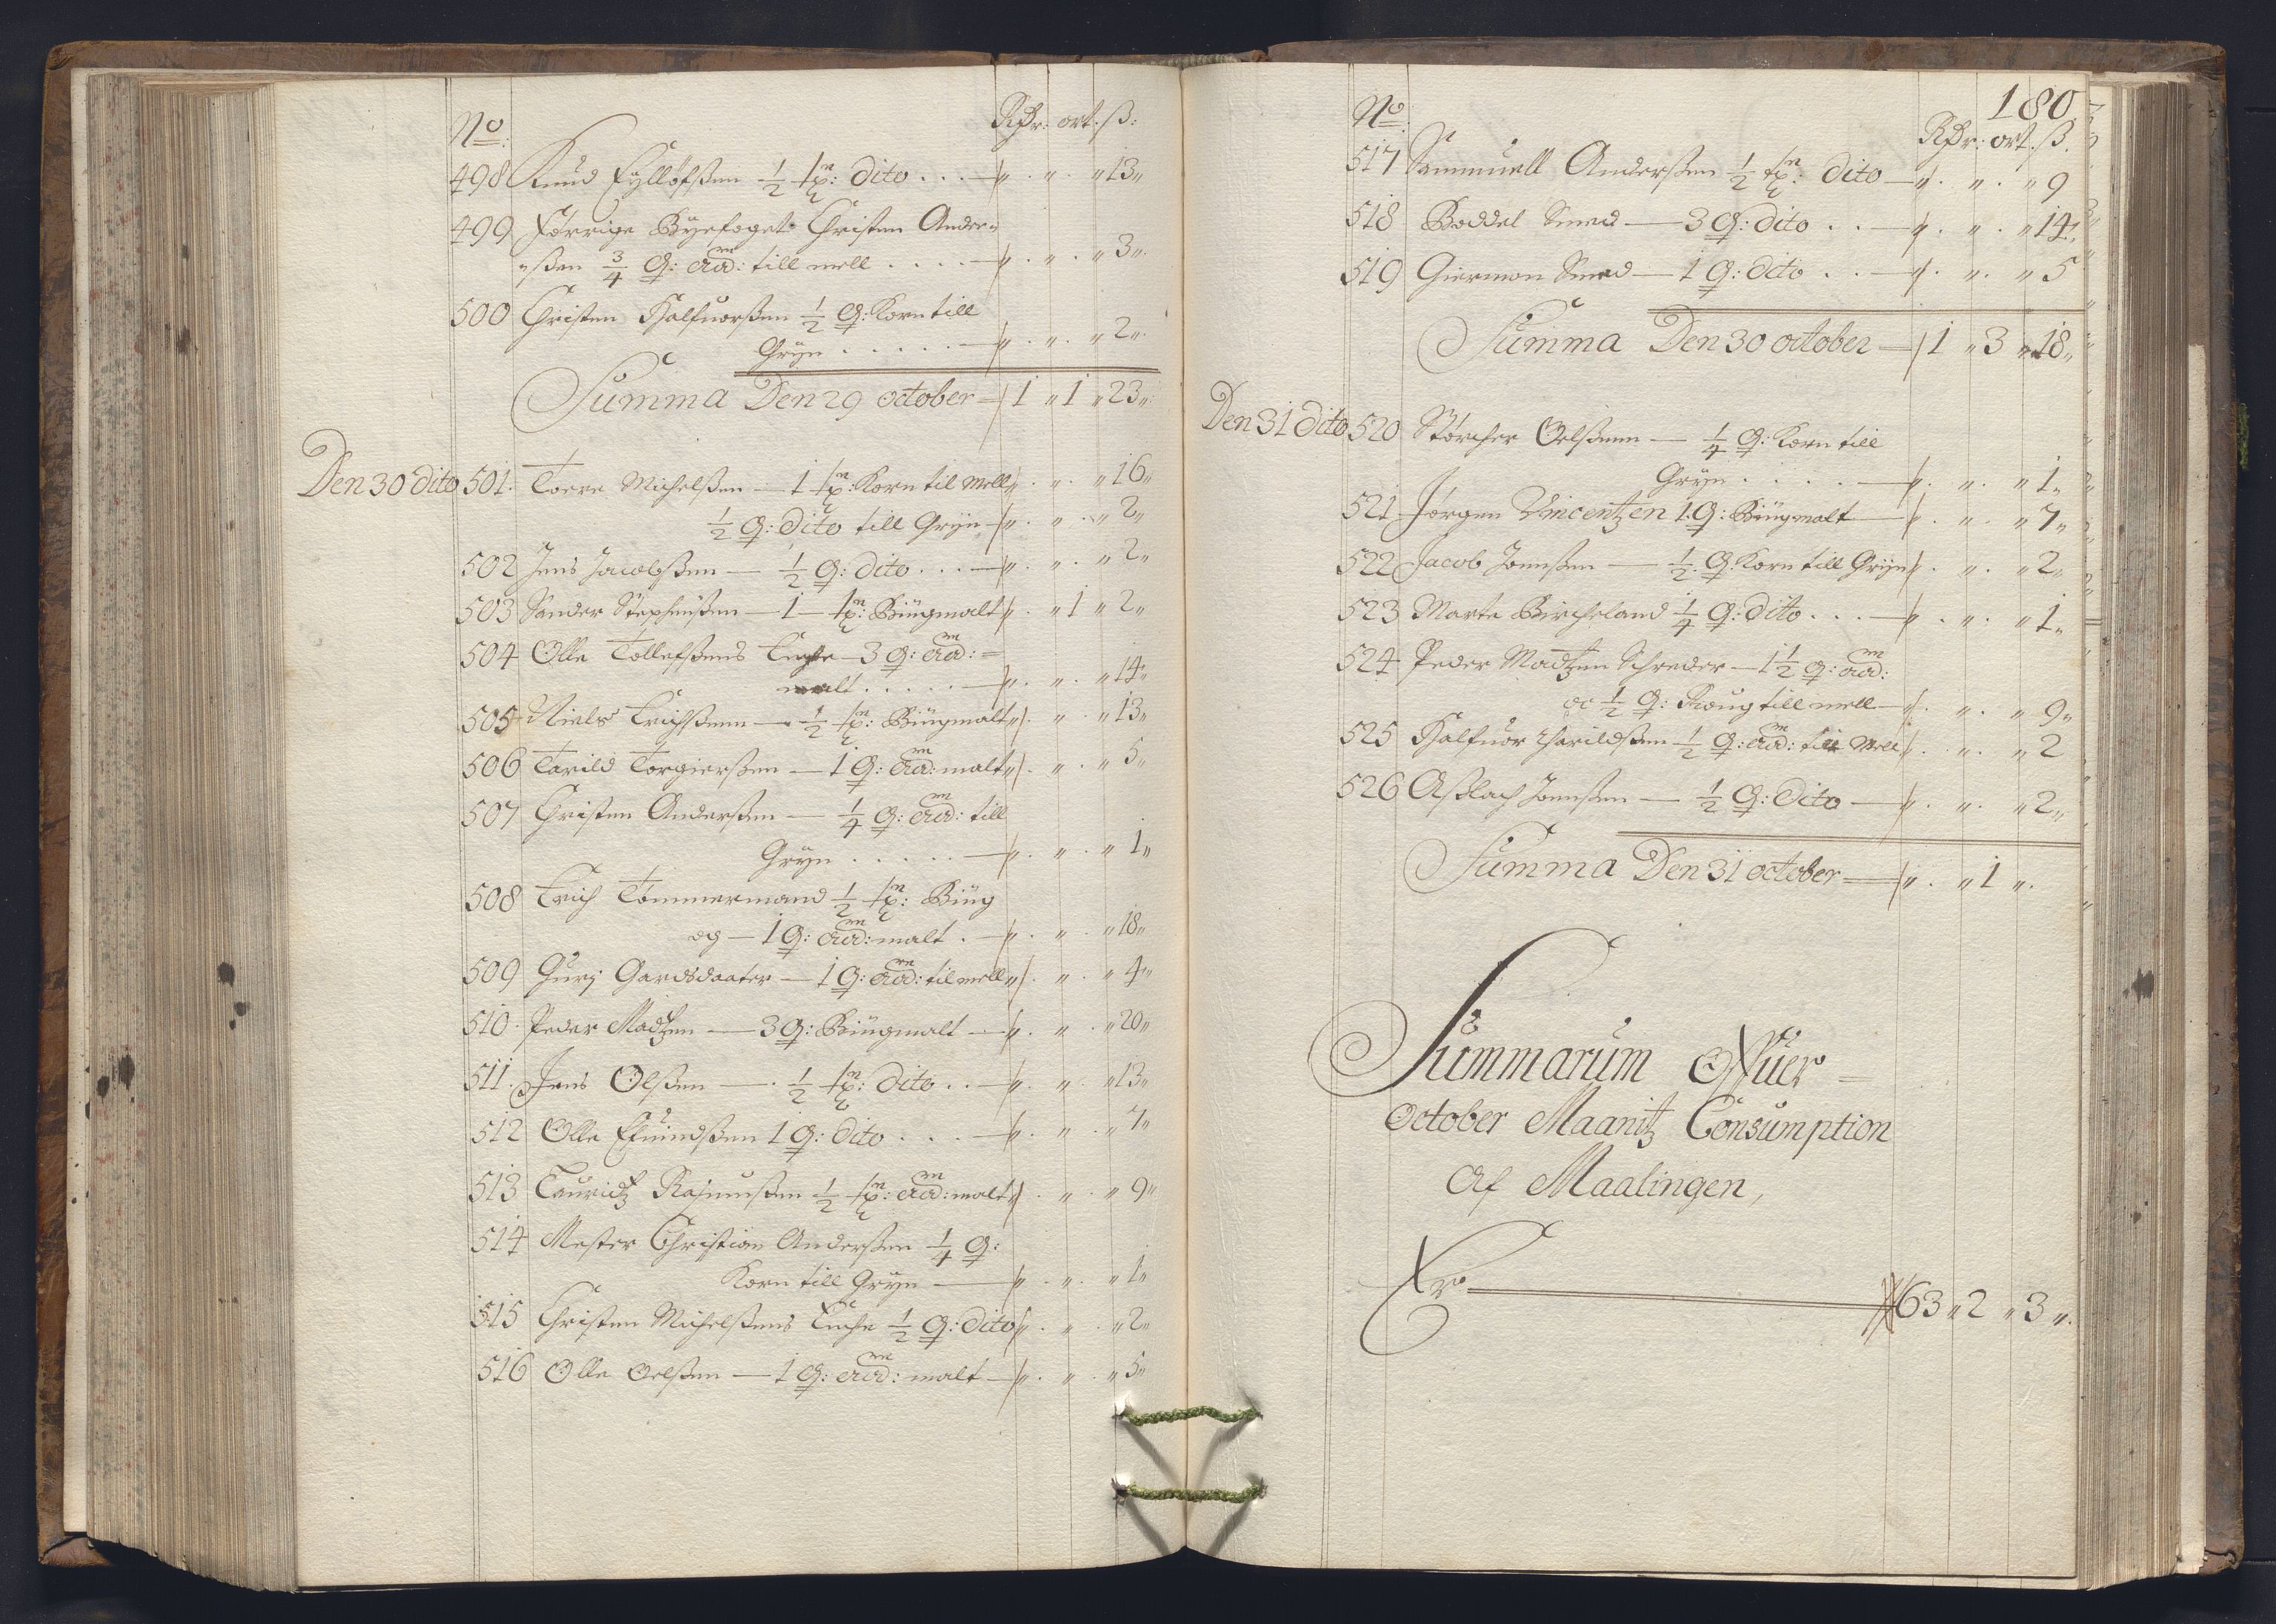 No: Rdr: ort: ß:
498 Knud Eyllofsßen ½ tn: dito . . . — " . " . " 13 "
499 Forrige Byefoget Christen Ander=
=ßen ¾ Q: till mell . . . . — " . " . " 3 "
500 Christen Halfuorßen ½ Q: Korn till
Gryn . . . . . — " . " . " 2 "
Summa Den 29 october — 1 " 1 " 23 "
Den 30 dito 501. Toere Michelßen — 1 tn: Korn til mell " . " . " 16 "
½ Q: dito till Gryn — " . " . " 2 "
502 Jens Jacobßen — ½ Q: dito . . . — " . " . " 2 "
503 Sander Stephenßen — 1 — tn: Bÿugmalt " . " 1 " 2 "
504 Olle Tollefßens Enche — 3 Q: =
malt . . . . . — " . " . " 14 "
505 Niels Erichßenn — ½ tn: Bÿugmalt " . " . " 13 "
506 Tarild Torgierßen — 1 Q: malt " . " . " 5 "
507 Christen Anderßen — ¼ Q: till
Gryn . . . . . — " . " . " 1 "
508 Erich Tømmermand ½ tn: Bÿug
og — 1 Q: malt . — " . " . " 18 "
509 Gurj Gardsdaater — 1 Q: til mell " . " . " 4 "
510. Peder Madtzen — 3 Q: Bÿugmalt — " . " . " 20 "
511. Jens Olßen — . ½ tn: dito . . — " . " . " 13 "
512 Olle Efuindßen 1 Q: dito . . . — " . " . " 7 "
513 Lauridtz Rasmusßen ½ tn: malt " . " . " 9 "
514 Mester Christian Anderßen ¼ Q:
Korn till Gryn — " . " . " 1 "
515 Christen Michelßens Enche ½ Q: dito " . " . " 2 "
516 Olle Oelßen — 1 Q: malt — " . " . " 5 "
180.
No: Rdr: ort. ß.
517 Sammuell Anderßen ½ tn: dito — " . " . " 9
518 Boddel Smed — 3 Q: dito . . — " . " . " 14 "
519 Giermon Smed — 1 Q: dito . . — " . " . " 5
Summa Den 30 october — 1 " 3 " 18 "
Den 31 dito 520 Størcher Oelßenn — ¼ Q: Korn till
Gryn . . . . — " . " . " 1 "
521 Jørgen Vincentzen 1. Q: Bÿugmalt — " . " . " 7 "
522 Jacob Jonßen — ½. Q. Korn till Gryn " . " . " 2 "
523 Marte Bircheland ¼ Q: dito . . . — " . " . " 1 "
524 Peder Madtzen Schreder — 1½ Q:
oc ½ Q: Roug till mell — " . " . " 9 "
525 Halfuor Tharildßen ½ Q: till mell " . " . " 2
526 Aßlach Jonßen — ½ Q: dito — " . " . " 2 "
Summa Den 31 october — " . " 1 " .
Summarum Offuer =
October Maanitz Consumption
Af Maalingen,
Er — 63 " 2 " 3 " .